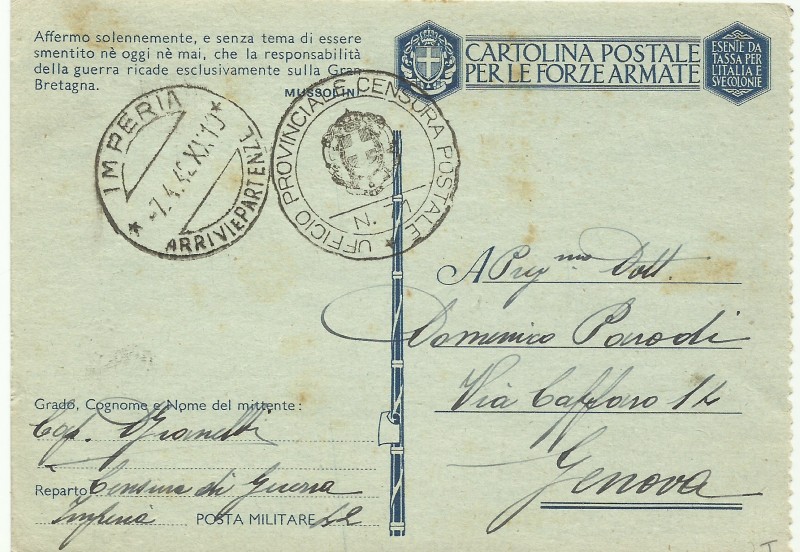 Affermo solennemente, e senza tema di essere
smentito nè oggi nè mai, che la responsabilità
della guerra ricade esclusivamente sulla Gran
Bretagna.
MUSSOLINI
CARTOLINA POSTALE
PER LE FORZE ARMATE
ESENTE DA
TASSA PER
L'ITALIA E
SVE COLONIE
IMPERIA
-7.4.42.XX.10
ARRIVI E PARTENZE
UFFICIO PROVINCIALE CENSURA POSTALE
N.
A Preg.mo Dott.
Domenico Parodi
Via Caffaro 12
Genova
Grado, Cognome e Nome del mittente:
Cap. Gianelli
Reparto Censura di Guerra
Imperia POSTA MILITARE 42